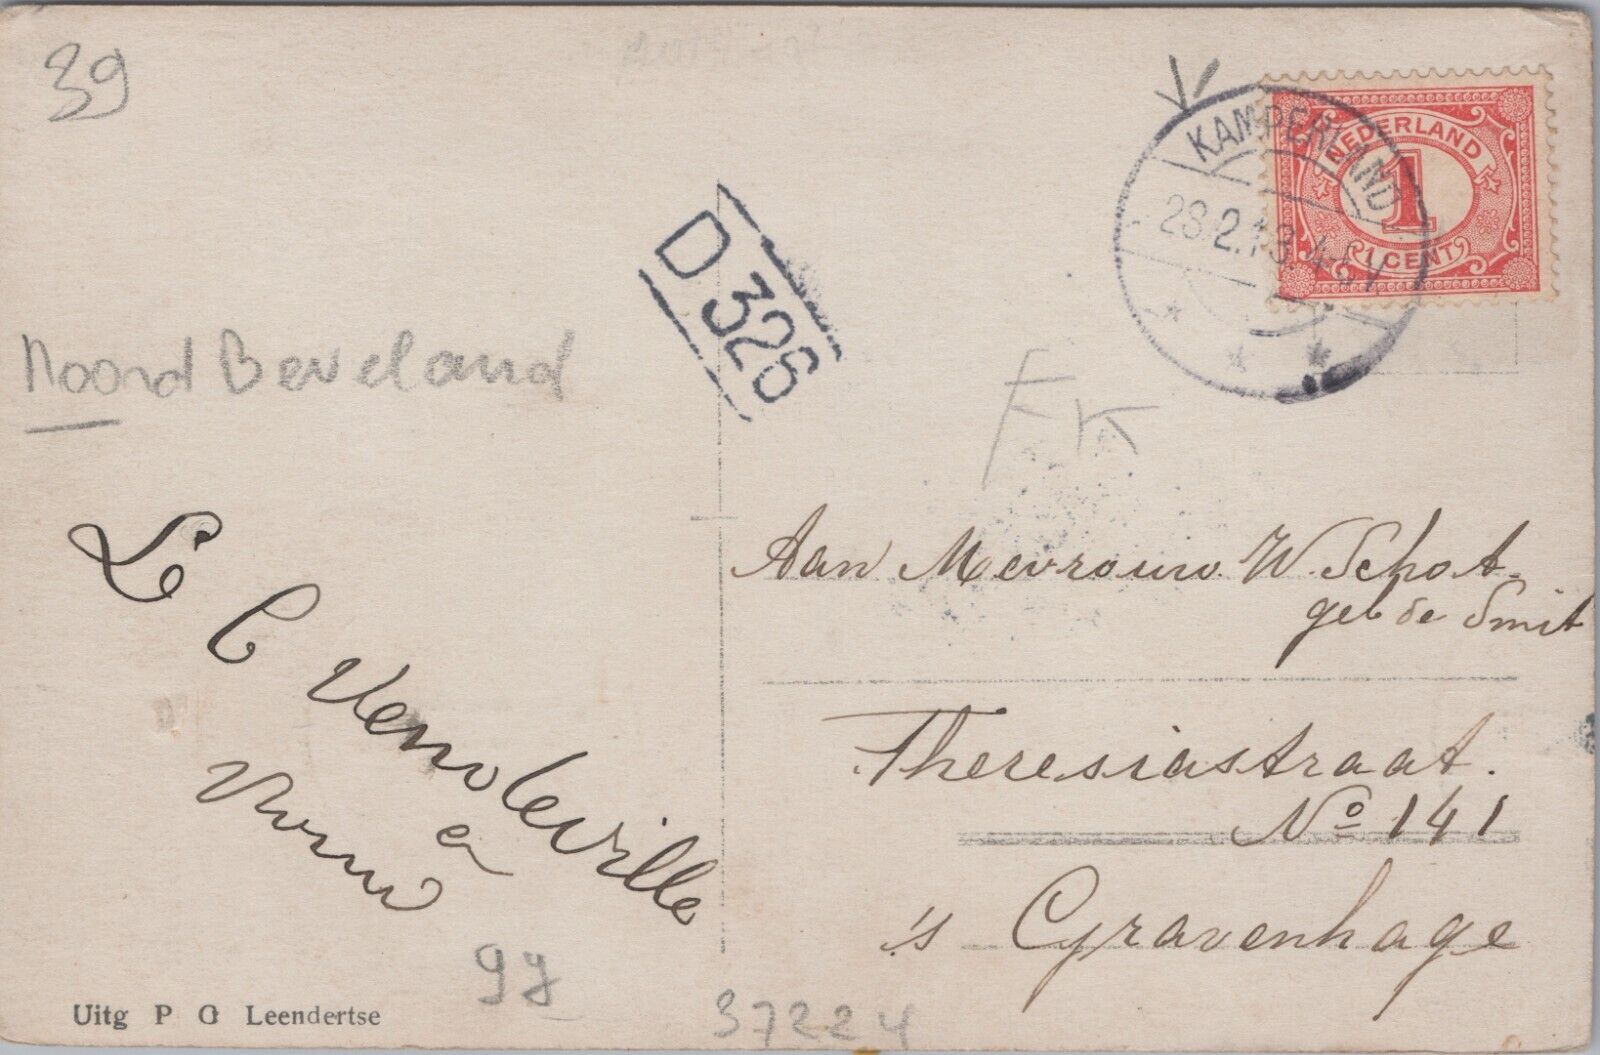 39
KAMPERLAND
28.2.13.
NEDERLAND
1
1 CENT
D 326
Noord Beveland
Aan Mevrouw W. Schot.
geb de Smit
Theresiastraat.
No 141
's Gravenhage
L C Vendeville
en
Vrouw
97
37224
Uitg P G Leendertse